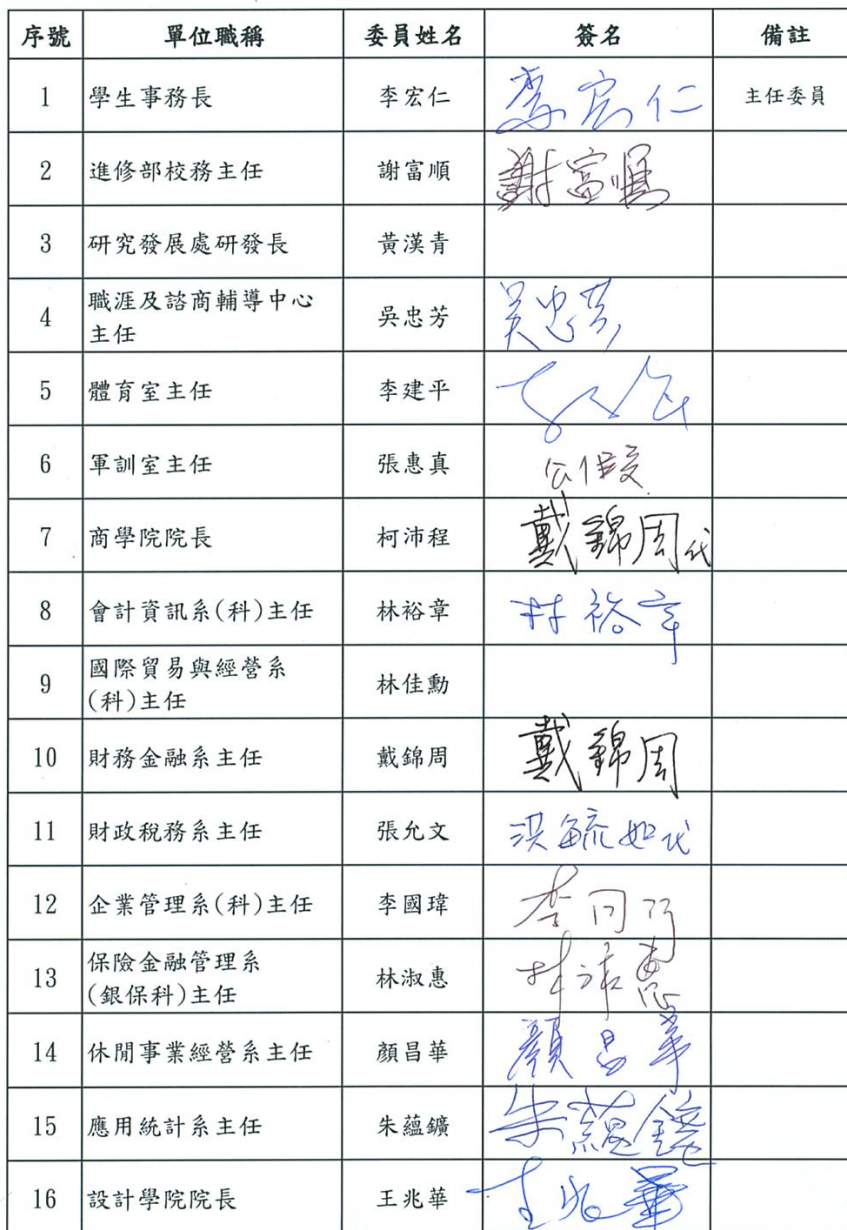 序號 單位職稱 委員姓名 簽名 備註
1 學生事務長 李宏仁 李宏仁 主任委員
2 進修部校務主任 謝富順 謝富順
3 研究發展處研發長 黃漢青
職涯及諮商輔導中心
4 主任 吳忠芳 吳忠芳
5 體育室主任 李建平
6 軍訓室主任 張惠真 公假
7 商學院院長 柯沛程 戴錦周代
8 會計資訊系(科)主任 林裕章 林裕章
國際貿易與經營系
9 (科)主任 林佳勳
10 財務金融系主任 戴錦周 戴錦周
11 財政稅務系主任 張允文 洪毓如代
12 企業管理系(科)主任 李國瑋
保險金融管理系
13 (銀保科)主任 林淑惠 林淑惠
14 休閒事業經營系主任 顏昌華 顏昌華
15 應用統計系主任 朱蘊鑛 朱蘊鑛
16 設計學院院長 王兆華 王兆華